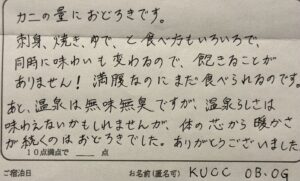 カニの量におどろきです。
刺身、焼き、ゆで、と食べ方もいろいろで、
同時に味わいも変わるので、飽きることが
ありません！満腹なのにまだ食べられるのです。
あと、温泉は無味無臭ですが、温泉らしさは
味わえないかもしれませんが、体の芯から暖かさ
が続くのはおどろきでした。ありがとうございました
10点満点で ___ 点
ご宿泊日 お名前(匿名可) KUCC OB.OG